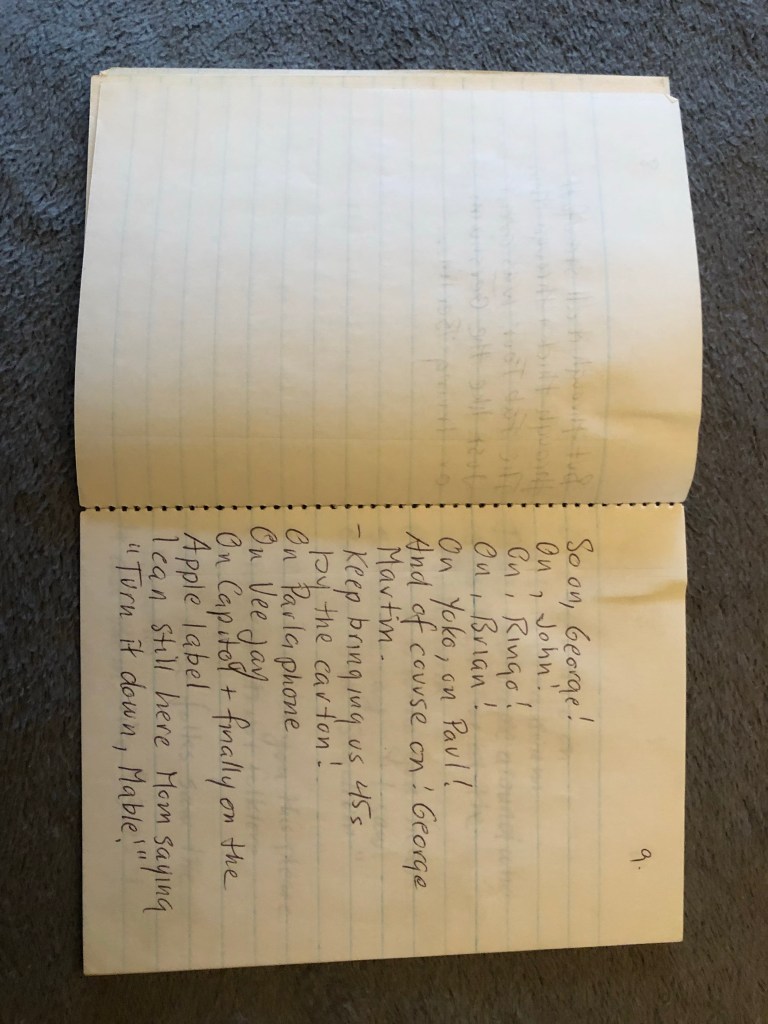 9.
So on, George!
On, John!
On, Ringo!
On, Brian!
On Yoko, on Paul!
And of course on! George
Martin.
- Keep bringing us 45s
by the carton!
On Parlaphone
On Vee Jay
On Capitol + finally on the
Apple label
I can still here Mom saying
"Turn it down, Mable!""